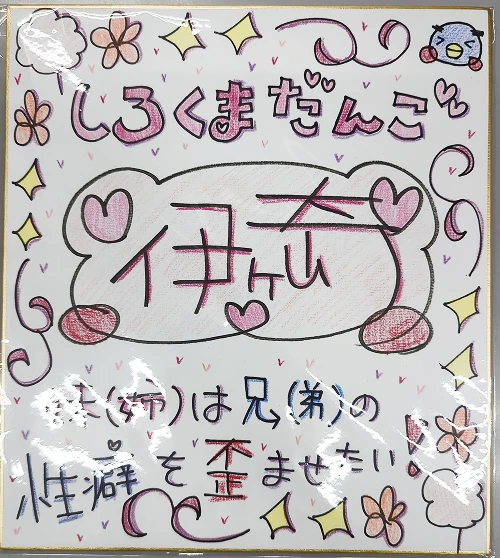 しろくまだんご
伊ヶ崎
妹(姉)は兄(弟)の
性癖を歪ませたい!